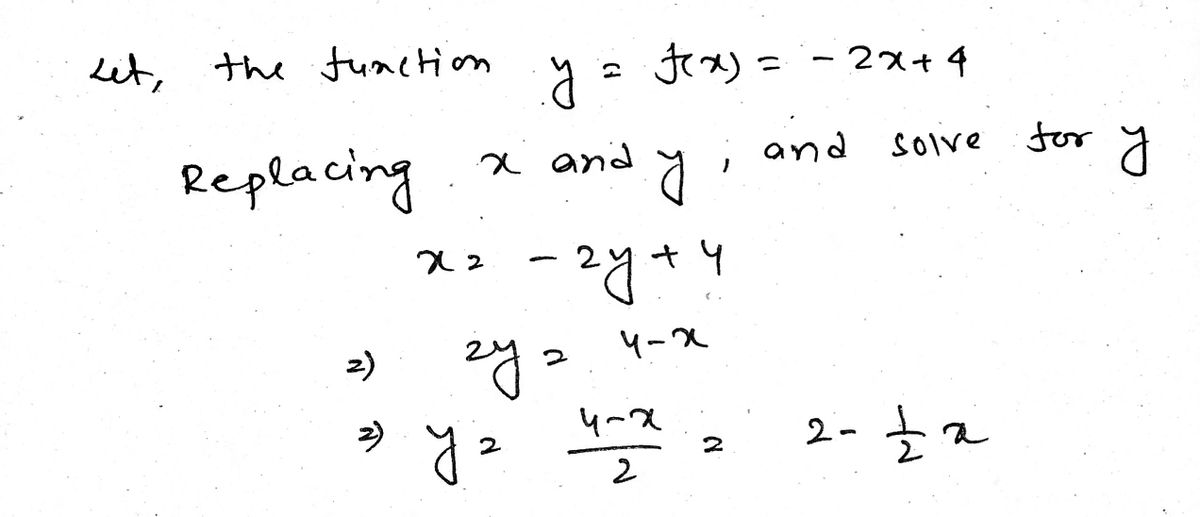 Let, the function y = f(x) = - 2x + 4
Replacing x and y, and solve for y
x = - 2y + 4
⇒ 2y = 4-x
⇒ y = \frac{4-x}{2} = 2 - \frac{1}{2} x